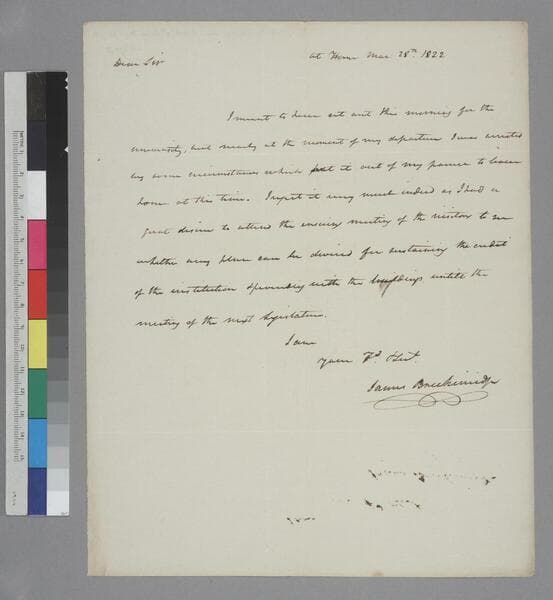 Dear Sir
At Home Mar 28th 1822
I meant to have set out this morning for the
university, but nearly at the moment of my departure I was arrested
by some circumstances which put it out of my power to leave
home at this time. I regret it very much indeed as I had a
great desire to attend the ensuing meeting of the visitors to see
whether any plan can be devised for sustaining the credit
of the institution & proceeding with the buildings untill the
meeting of the next legislature.
I am
your
James Breckinridge